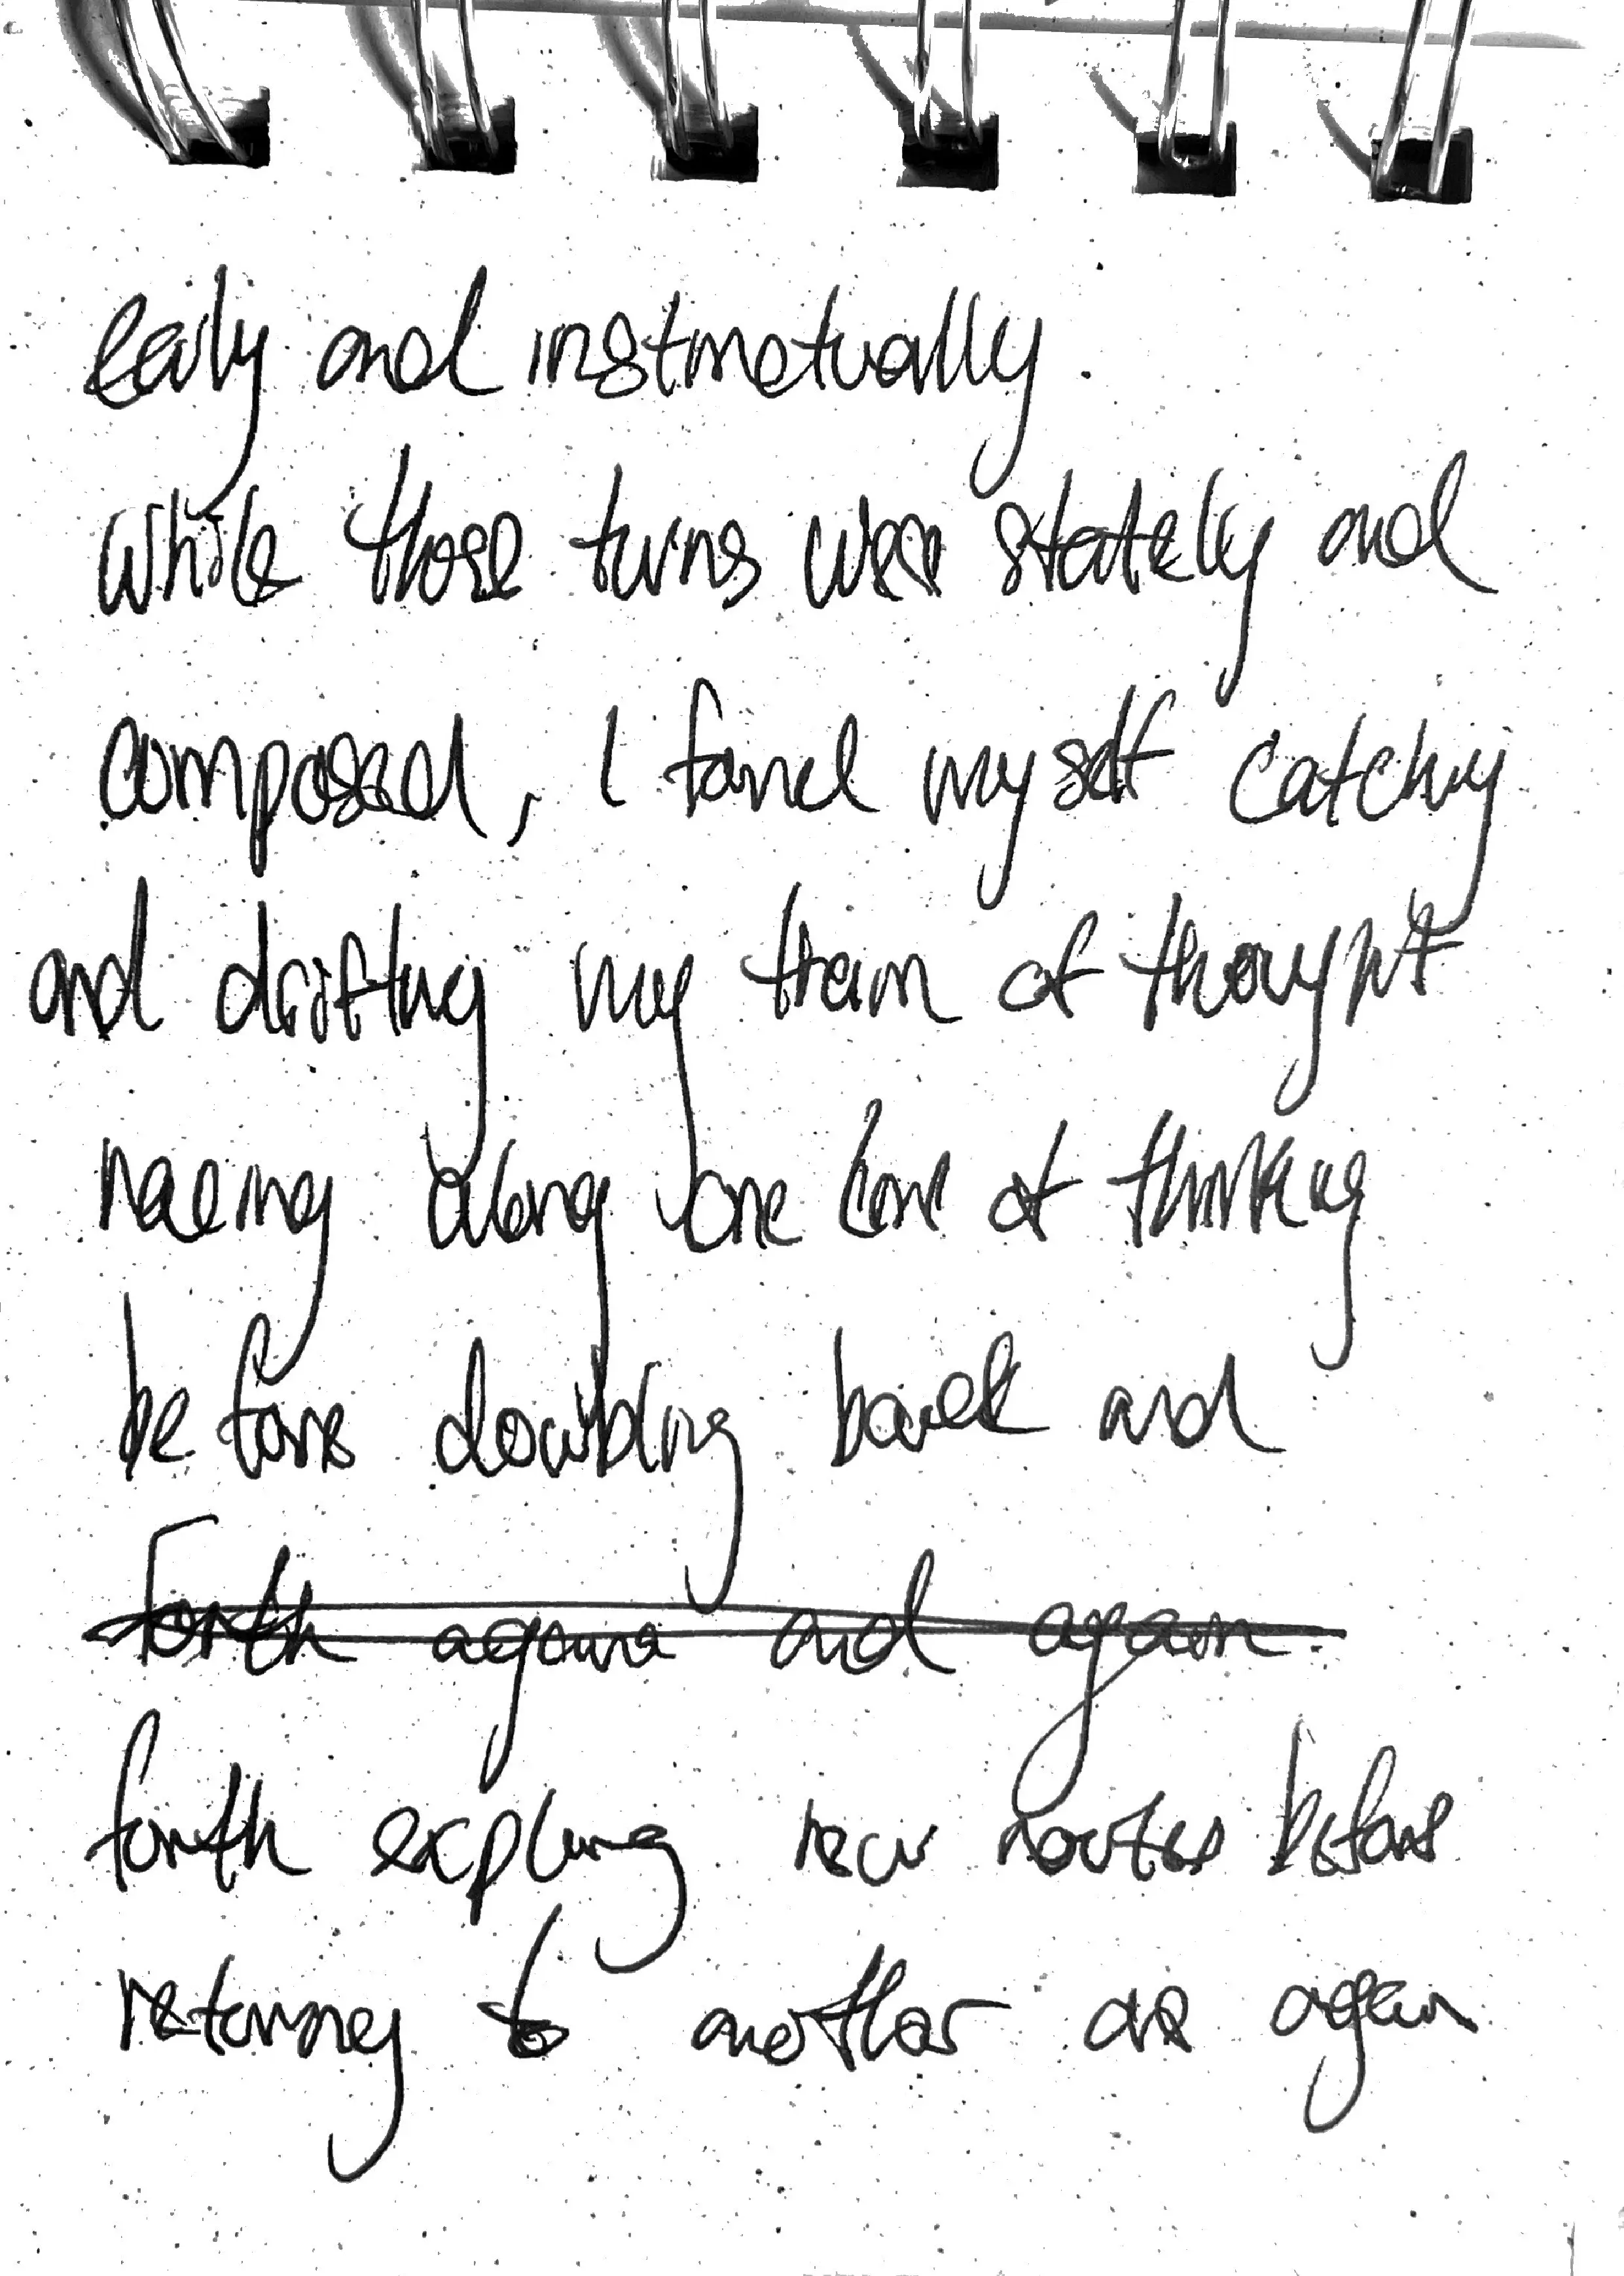 easily and instinctually.
while those turns were stately and
composed, I found myself catching
and drifting my train of thought
racing along one line of thinking
before doubling back and
forth again and again.
forth exploring new routes before
returning to another as again